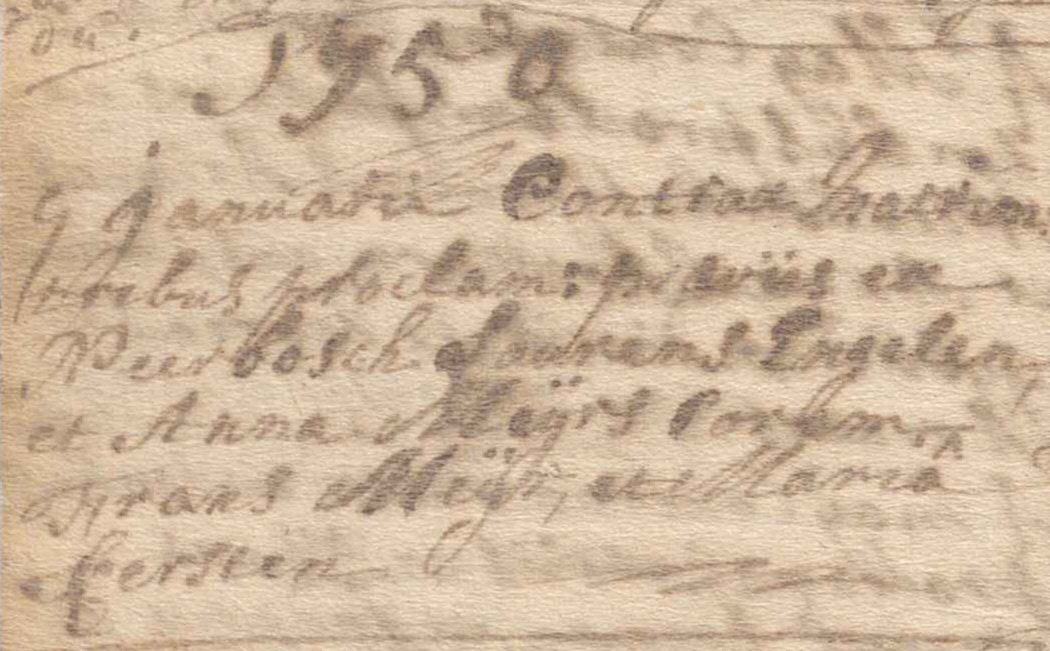 1750
9 Januarii Contrax Matrim:
tribus proclam: præviis ex
Peerbosch Lourens Engelen,
et Anna Meÿrs Coram
Frans Meÿr, et Maria
Cersten